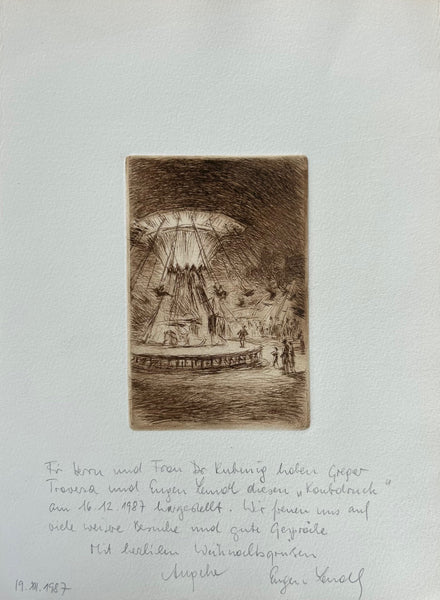 Für Herrn und Frau Dr. Kubinig haben Gregor
Traversa und Eugen Lendl diesen „Kontdruck“
am 16.12.1987 hergestellt. Wir freuen uns auf
viele weitere Besuche und gute Gespräche
Mit herzlichen Weihnachtsgrüßen
Eugen Lendl
19.XII.1987